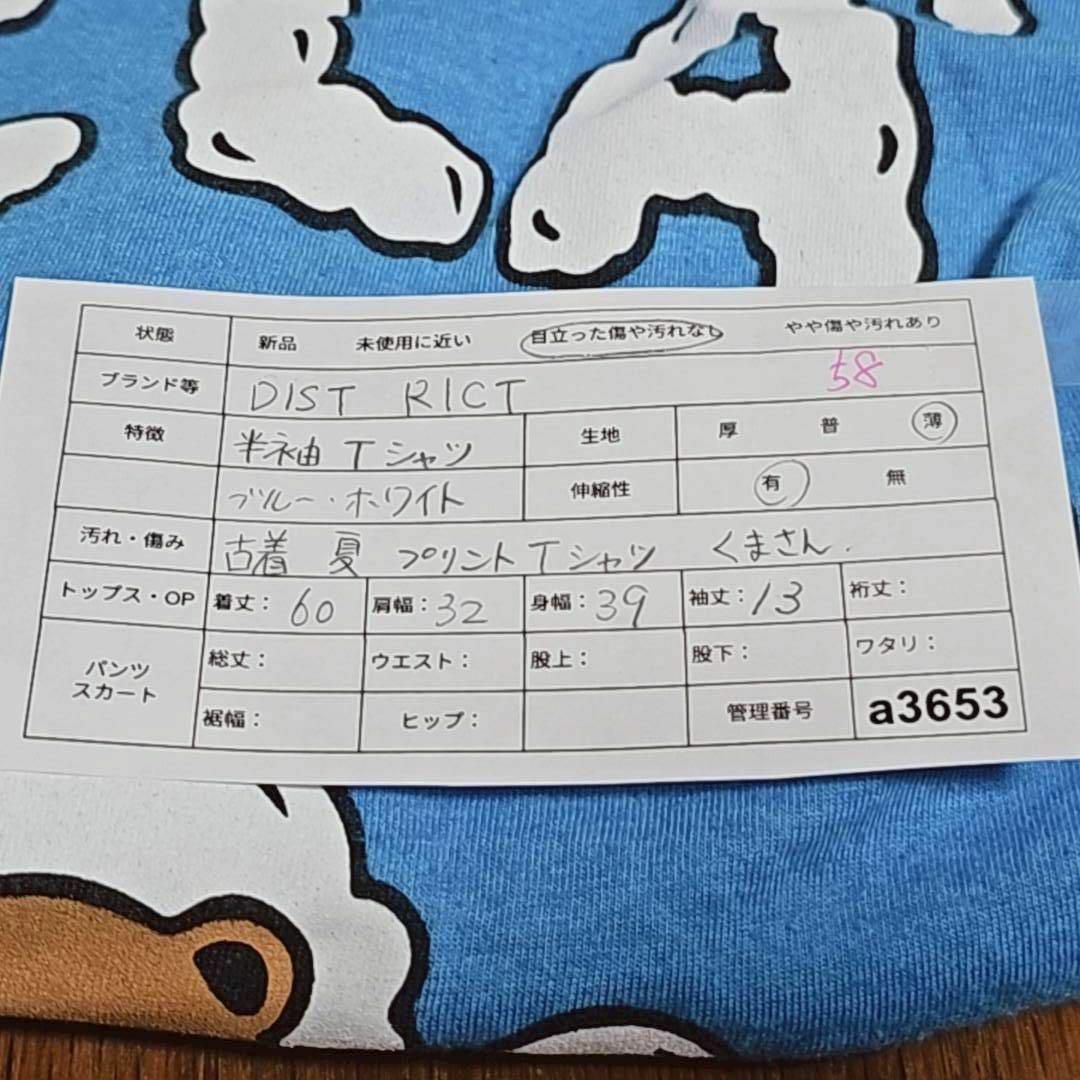 状態 新品 未使用に近い 目立った傷や汚れなし やや傷や汚れあり
ブランド等 DIST RICT 58
特徴 半袖 Tシャツ 生地 厚 普 薄
ブルー・ホワイト 伸縮性 有 無
汚れ・傷み 古着 夏 プリントTシャツ くまさん.
トップス・OP 着丈: 60 肩幅: 32 身幅: 39 袖丈: 13 裄丈:
パンツ スカート 総丈: ウエスト: 股上: 股下: ワタリ:
裾幅: ヒップ: 管理番号 a3653